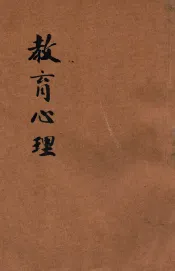 教育心理